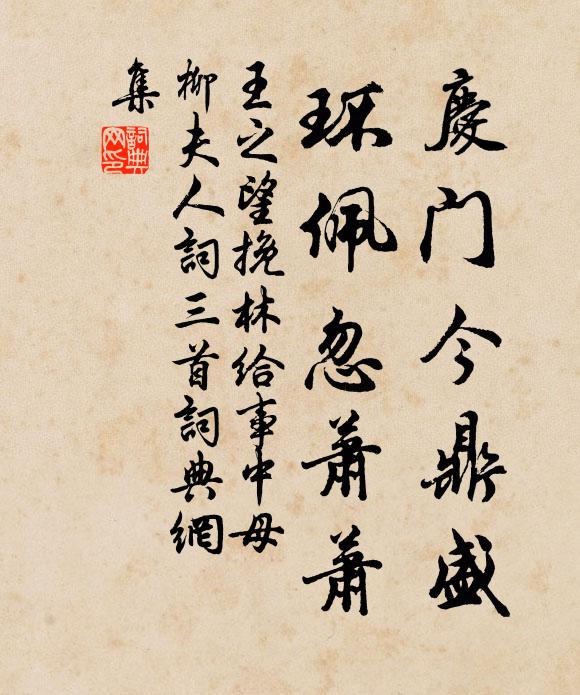 慶门今鼎盛
环佩忽萧萧
王之望挽林给事中母
柳夫人詞三首詞典網
集
詞典
网印